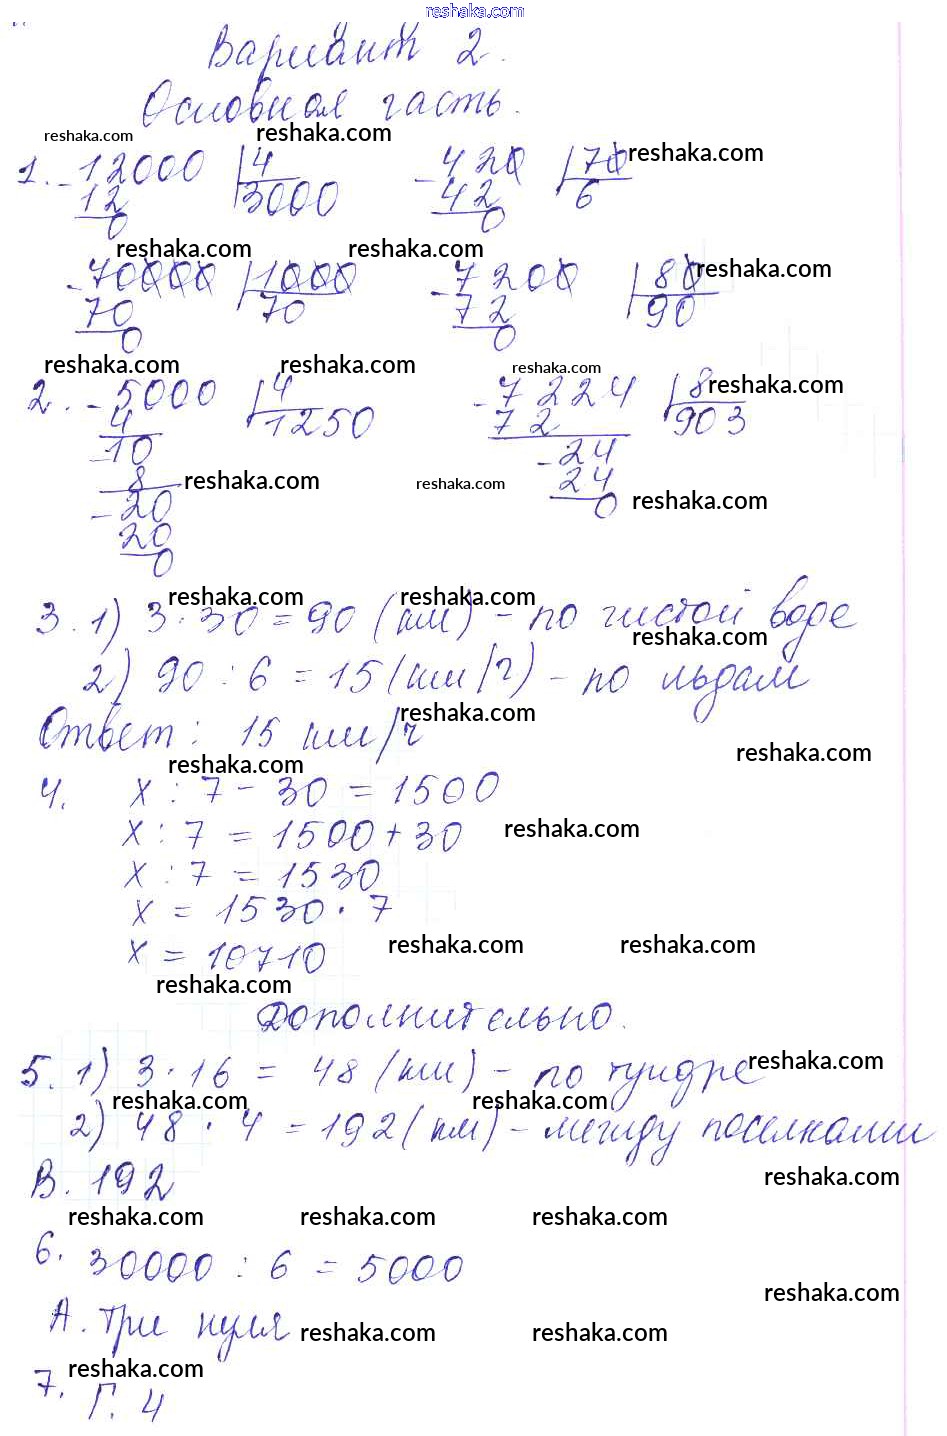 reshaka.com
Вариант 2.
Основная часть.
reshaka.com reshaka.com
1. - 12000 |4 - 420 |70 reshaka.com
12 3000 42 6
0 0
reshaka.com reshaka.com
- 70000 |1000 - 7200 |80 reshaka.com
70 70 72 90
0 0
reshaka.com reshaka.com reshaka.com
2. - 5000 |4 - 7224 |8 reshaka.com
4 1250 72 903
- 10 - 24
8 reshaka.com reshaka.com 24
- 20 0 reshaka.com
20
0
reshaka.com reshaka.com
3. 1) 3 · 30 = 90 (км) - по чистой воде
reshaka.com
2) 90 : 6 = 15 (км/ч) - по льдам
reshaka.com
Ответ: 15 км/ч
reshaka.com reshaka.com
4. x : 7 - 30 = 1500
x : 7 = 1500 + 30 reshaka.com
x : 7 = 1530
x = 1530 · 7
reshaka.com reshaka.com
x = 10710
reshaka.com
Дополнительно.
5. 1) 3 · 16 = 48 (км) - по тундре reshaka.com
reshaka.com reshaka.com
2) 48 · 4 = 192 (км) - между поселками
В. 192 reshaka.com
reshaka.com reshaka.com reshaka.com
6. 30000 : 6 = 5000
reshaka.com
А. Три нуля reshaka.com reshaka.com
reshaka.com
7. Г. 4